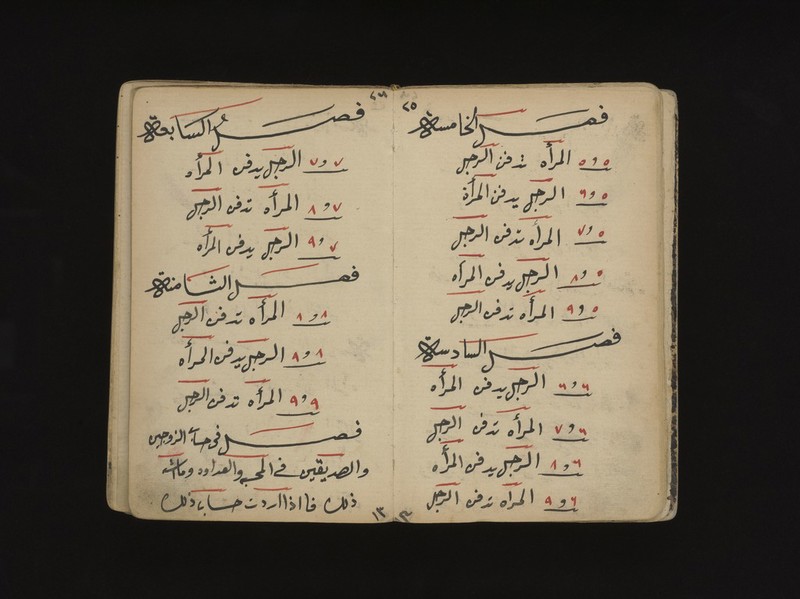 ٢٥
فصل الخامسة
٥و٥ المرأه تدفن الرجل
٥و٦ الرجل يدفن المرأة
٥و٧ المرأه تدفن الرجل
٥و٨ الرجل يدفن المرأه
٥و٩ المرأه تدفن الرجل
فصل السادسة
٦و٦ الرجل يدفن المرأه
٦و٧ المرأه تدفن الرجل
٦و٨ الرجل يدفن المرأه
٦و٩ المرأه تدفن الرجل
٢٦
فصل السابعة
٧و٧ الرجل يدفن المرأه
٧و٨ المرأه تدفن الرجل
٧و٩ الرجل يدفن المرأه
فصل الثامنة
٨و٨ المرأه تدفن الرجل
٨و٨ الرجل يدفن المرأه
٩و٩ المرأه تدفن الرجل
فصل في حساب الزوجين
والصديقين في المحبه والعداوه وما شه
ذلك فااذا اردت حساب ذلك
١٣